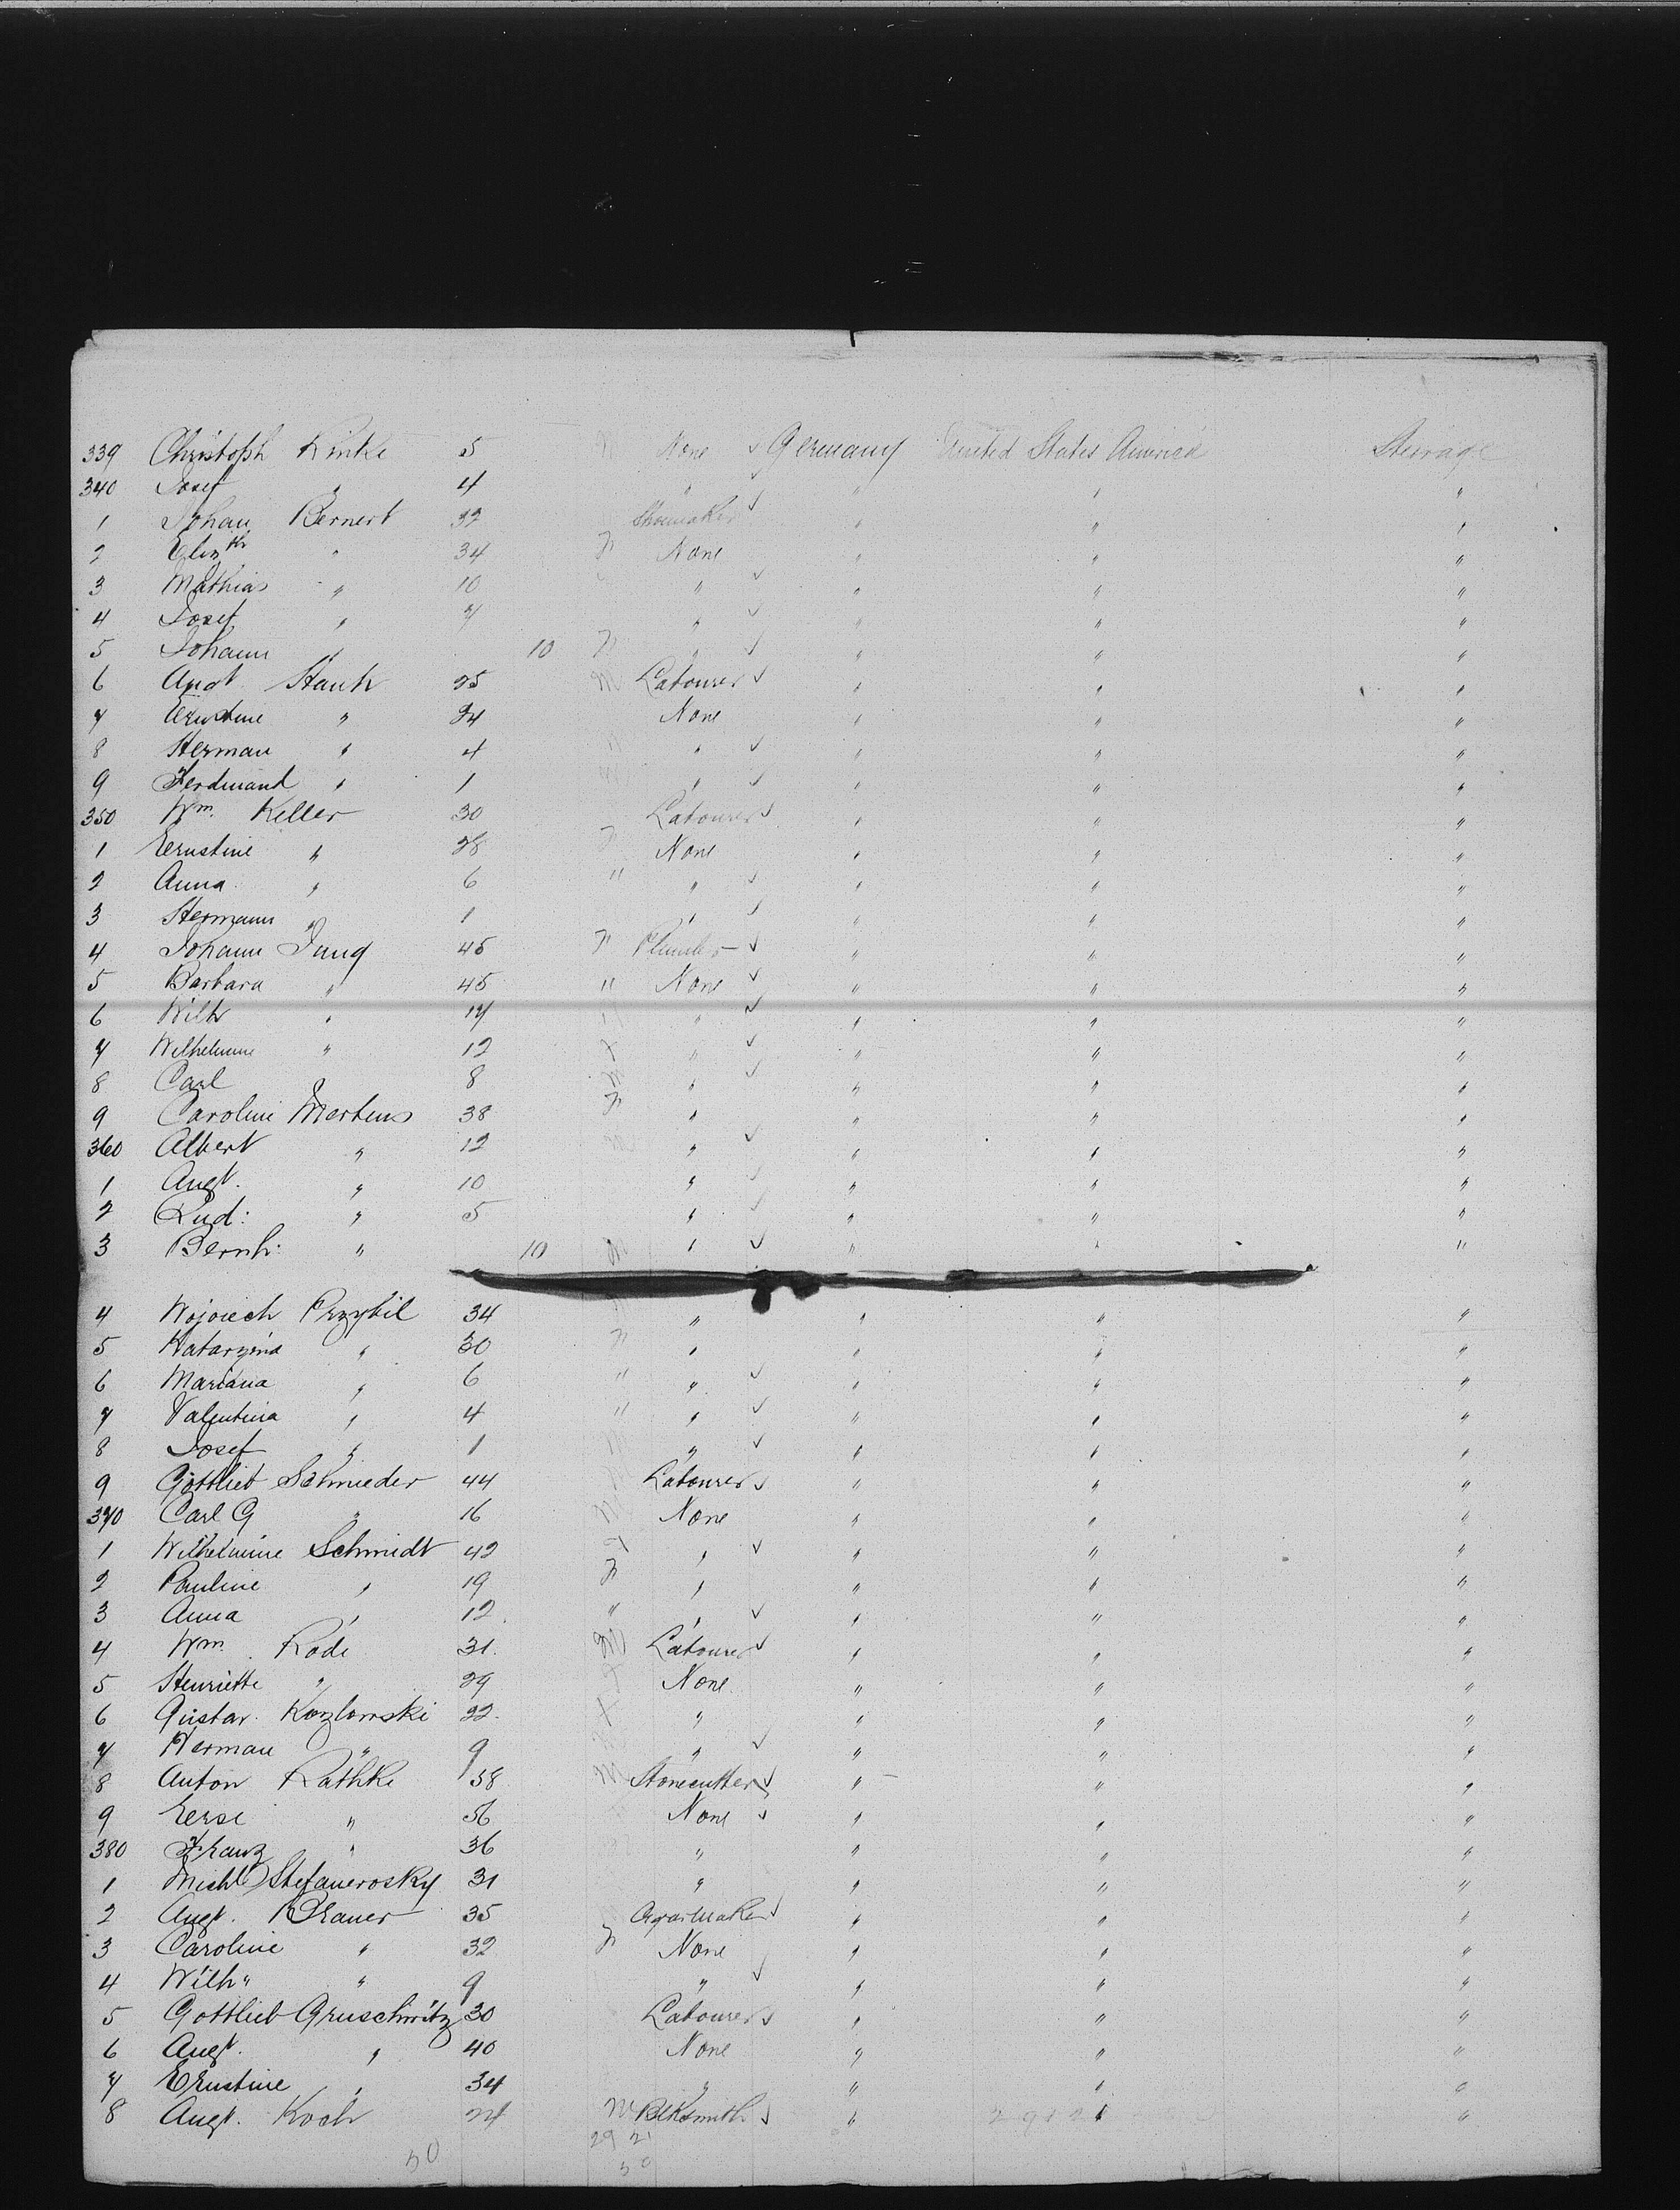 339 Christoph Kinke 5 M None ✓ Germany United States America Steerage
340 Josef " 4 " ✓ " " "
1 Johan Bernert 32 Shoemaker ✓ " " "
2 Eliz th " 34 F None " " "
3 Mathias " 10 " ✓ " " "
4 Josef " 7 " ✓ " " "
5 Johann " 10 " ✓ " " "
6 Augt. Stank 25 M Labourer ✓ " " "
7 Ernstine " 24 None " " "
8 Herman " 4 " ✓ " " "
9 Ferdinand " 1 " ✓ " " "
350 Wm. Keller 30 Labourer ✓ " " "
1 Ernstine " 28 F None " " "
2 Anna " 6 " " ✓ " " "
3 Hermann " 1 " ✓ " " "
4 Johann Jung 45 Plumber ✓ " " "
5 Barbara " 45 " None ✓ " " "
6 Wilh " 17 " ✓ " " "
7 Wilhelmine " 12 " ✓ " " "
8 Carl " 8 M " ✓ " " "
9 Caroline Mertens 38 F " " " "
360 Albert " 12 M " ✓ " " "
1 Augt. " 10 " ✓ " " "
2 Lud: " 5 " ✓ " " "
3 Bernh: " 10 M " ✓ " " "
4 Wojciech Przybil 34 " " " "
5 Katarzina " 30 F " " " "
6 Mariana " 6 " " ✓ " " "
7 Valentina " 4 " " ✓ " " "
8 Josef " 1 " ✓ " " "
9 Gottlieb Schmieder 44 Labourer ✓ " " "
370 Carl G " 16 M None " " "
1 Wilhelmine Schmidt 42 F " ✓ " " "
2 Pauline " 19 F " " " "
3 Anna " 12 " " ✓ " " "
4 Wm. Rode 31. M Labourer ✓ " " "
5 Henriette " 29 None " " "
6 Gustav. Kozlowski 22. " " " "
7 Herman " 9 " ✓ " " "
8 Anton Rathke 58 M Stonecutter ✓ " " "
9 " 56 None ✓ " " "
380 Franz " 36 " " " "
1 Michl 31 " " " "
2 Augt. Brauer 35 Cigarmaker ✓ " " "
3 Caroline " 32 F None " " "
4 Wilh " " 9 " ✓ " " "
5 Gottlieb Gruschwitz 30 Labourer ✓ " " "
6 Augt. " 40 None " " "
7 Ernstine " 34 " " " "
8 Augt. Koch 24 M Blksmith ✓ " " "
29 21
50 50